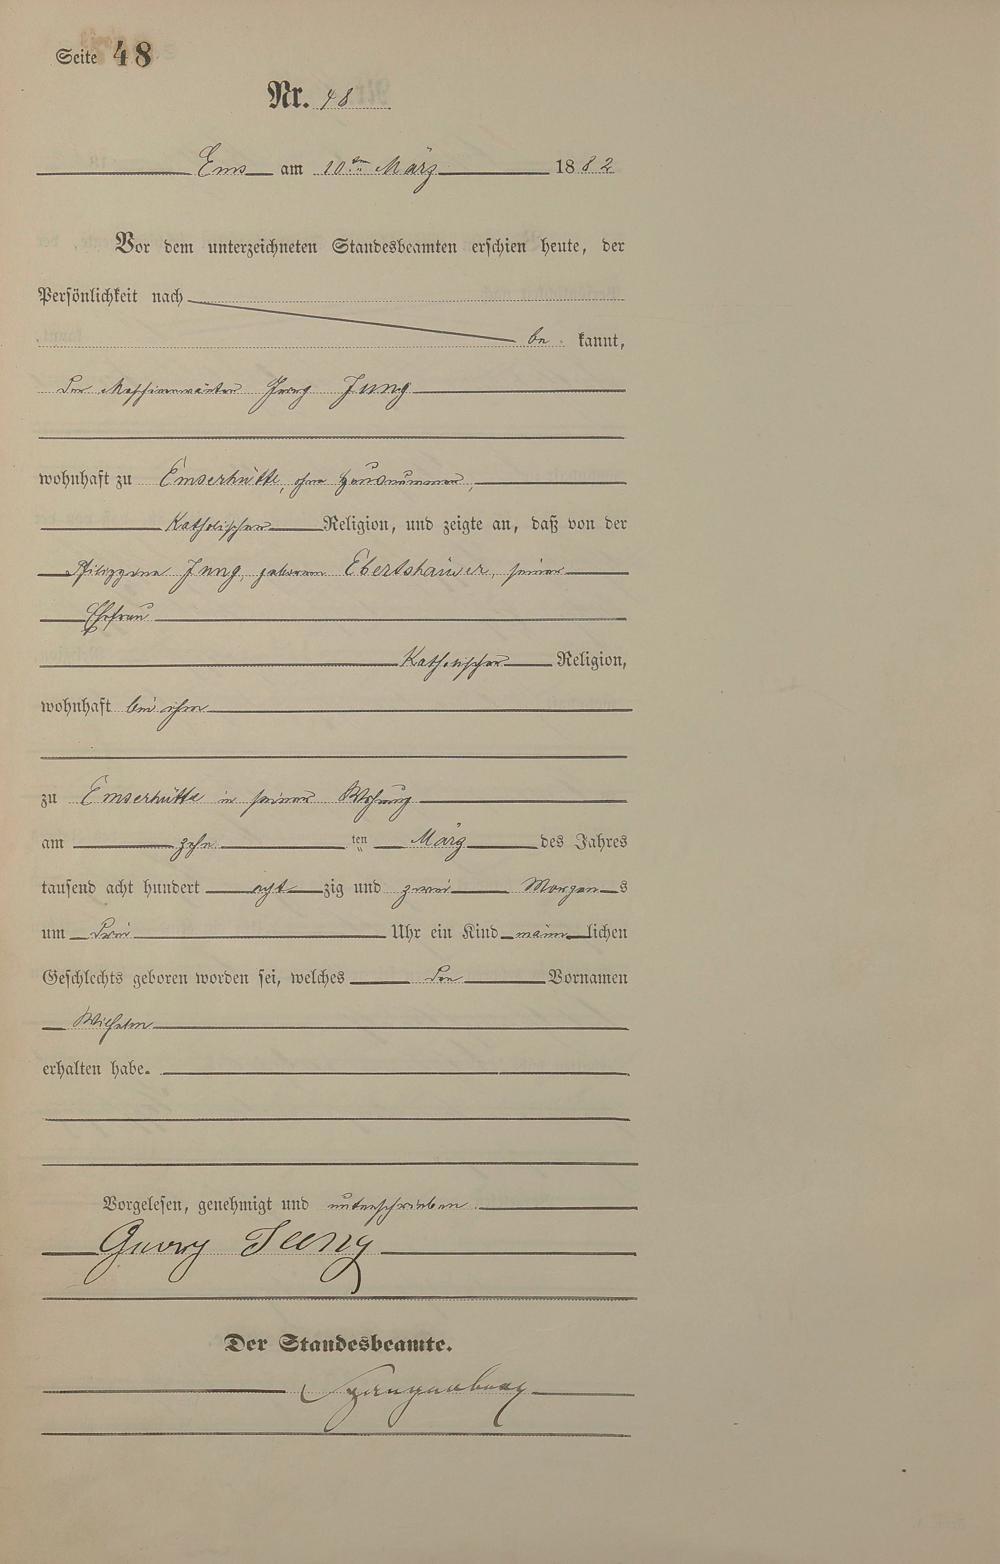 Seite 48
Nr. 48
Ems am 10ten März 1882
Vor dem unterzeichneten Standesbeamten erschien heute, der
Persönlichkeit nach
be kannt,
der Maschinenwärter Georg Jung
wohnhaft zu Emserhütte, ohne Hausnummer,
Katholischer Religion, und zeigte an, daß von der
Philippine Jung, geborenen Ebertshäuser, seiner
Ehefrau
Katholischer Religion,
wohnhaft bei ihm
zu Emserhütte in seiner Wohnung
am zehn ten März des Jahres
tausend acht hundert acht zig und zwei Morgen s
um drei Uhr ein Kind männ lichen
Geschlechts geboren worden sei, welches den Vornamen
Wilhelm
erhalten habe.
Vorgelesen, genehmigt und unterschrieben.
Georg Jung
Der Standesbeamte.